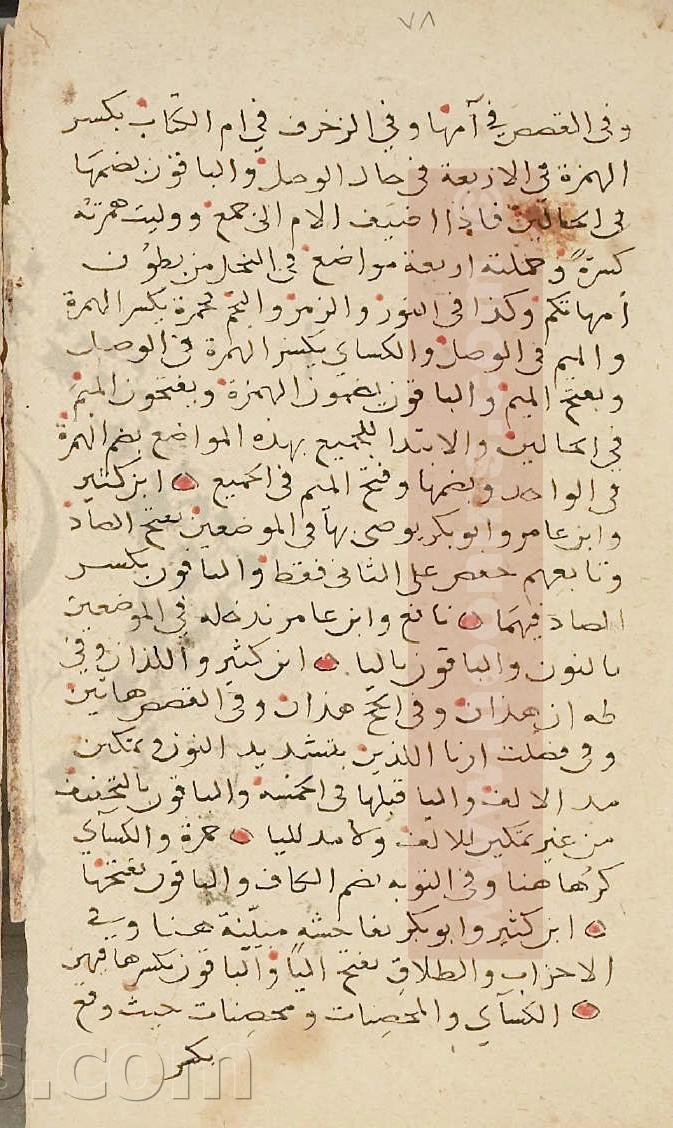 ٧٨
وفى القصص فى آمها وفى الزخرف فى ام الكتاب بكسر
الهمزة فى الاربعة فى حال الوصل والباقون بضمها
فى الحالين فاذا اضيف الام الى جمع ووليت همزته
كسرة وجملته اربعة مواضع فى النحل من بطون
أمهاتكم وكذا فى النور والزمر والنجم فحمزة بكسر الهمزة
والميم فى الوصل والكساي بكسر الهمزة فى الوصل
وبفتح الميم والباقون بضمون الهمزة وبفتحون الميم
فى الحالين والابتدا للجميع بهذه المواضع بضم الهمزة
فى الواحد وبضمها وفتح الميم فى الجميع ابن كثير
وابن عامر وابو بكر يوصى بها فى الموضعين بفتح الصاد
وتابعهم حفص على الثانى فقط والباقون بكسر
الصاد فيهما نافع وابن عامر ندخله فى الموضعين
بالنون والباقون باليا ابن كثير واللذان وفى
طه ان هذان وفى الحج هذان وفى القصص هاتين
وفى فصلت ارنا اللذين بتشديد النون وتمكين
مد الالف واليا قبلها فى الخمسة والباقون بالتخفيف
من غير تمكين للالف ولا مد لليا حمزة والكسآي
كرها هنا وفى التوبه بضم الكاف والباقون بفتحها
ابن كثير وابو بكر بفاحشه مبيّنة هنا وفى
الاحزاب والطلاق بفتح اليا والباقون بكسرها فيهن
الكسآي والمحصنات ومحصنات حيث وقع
بكسر
s.com